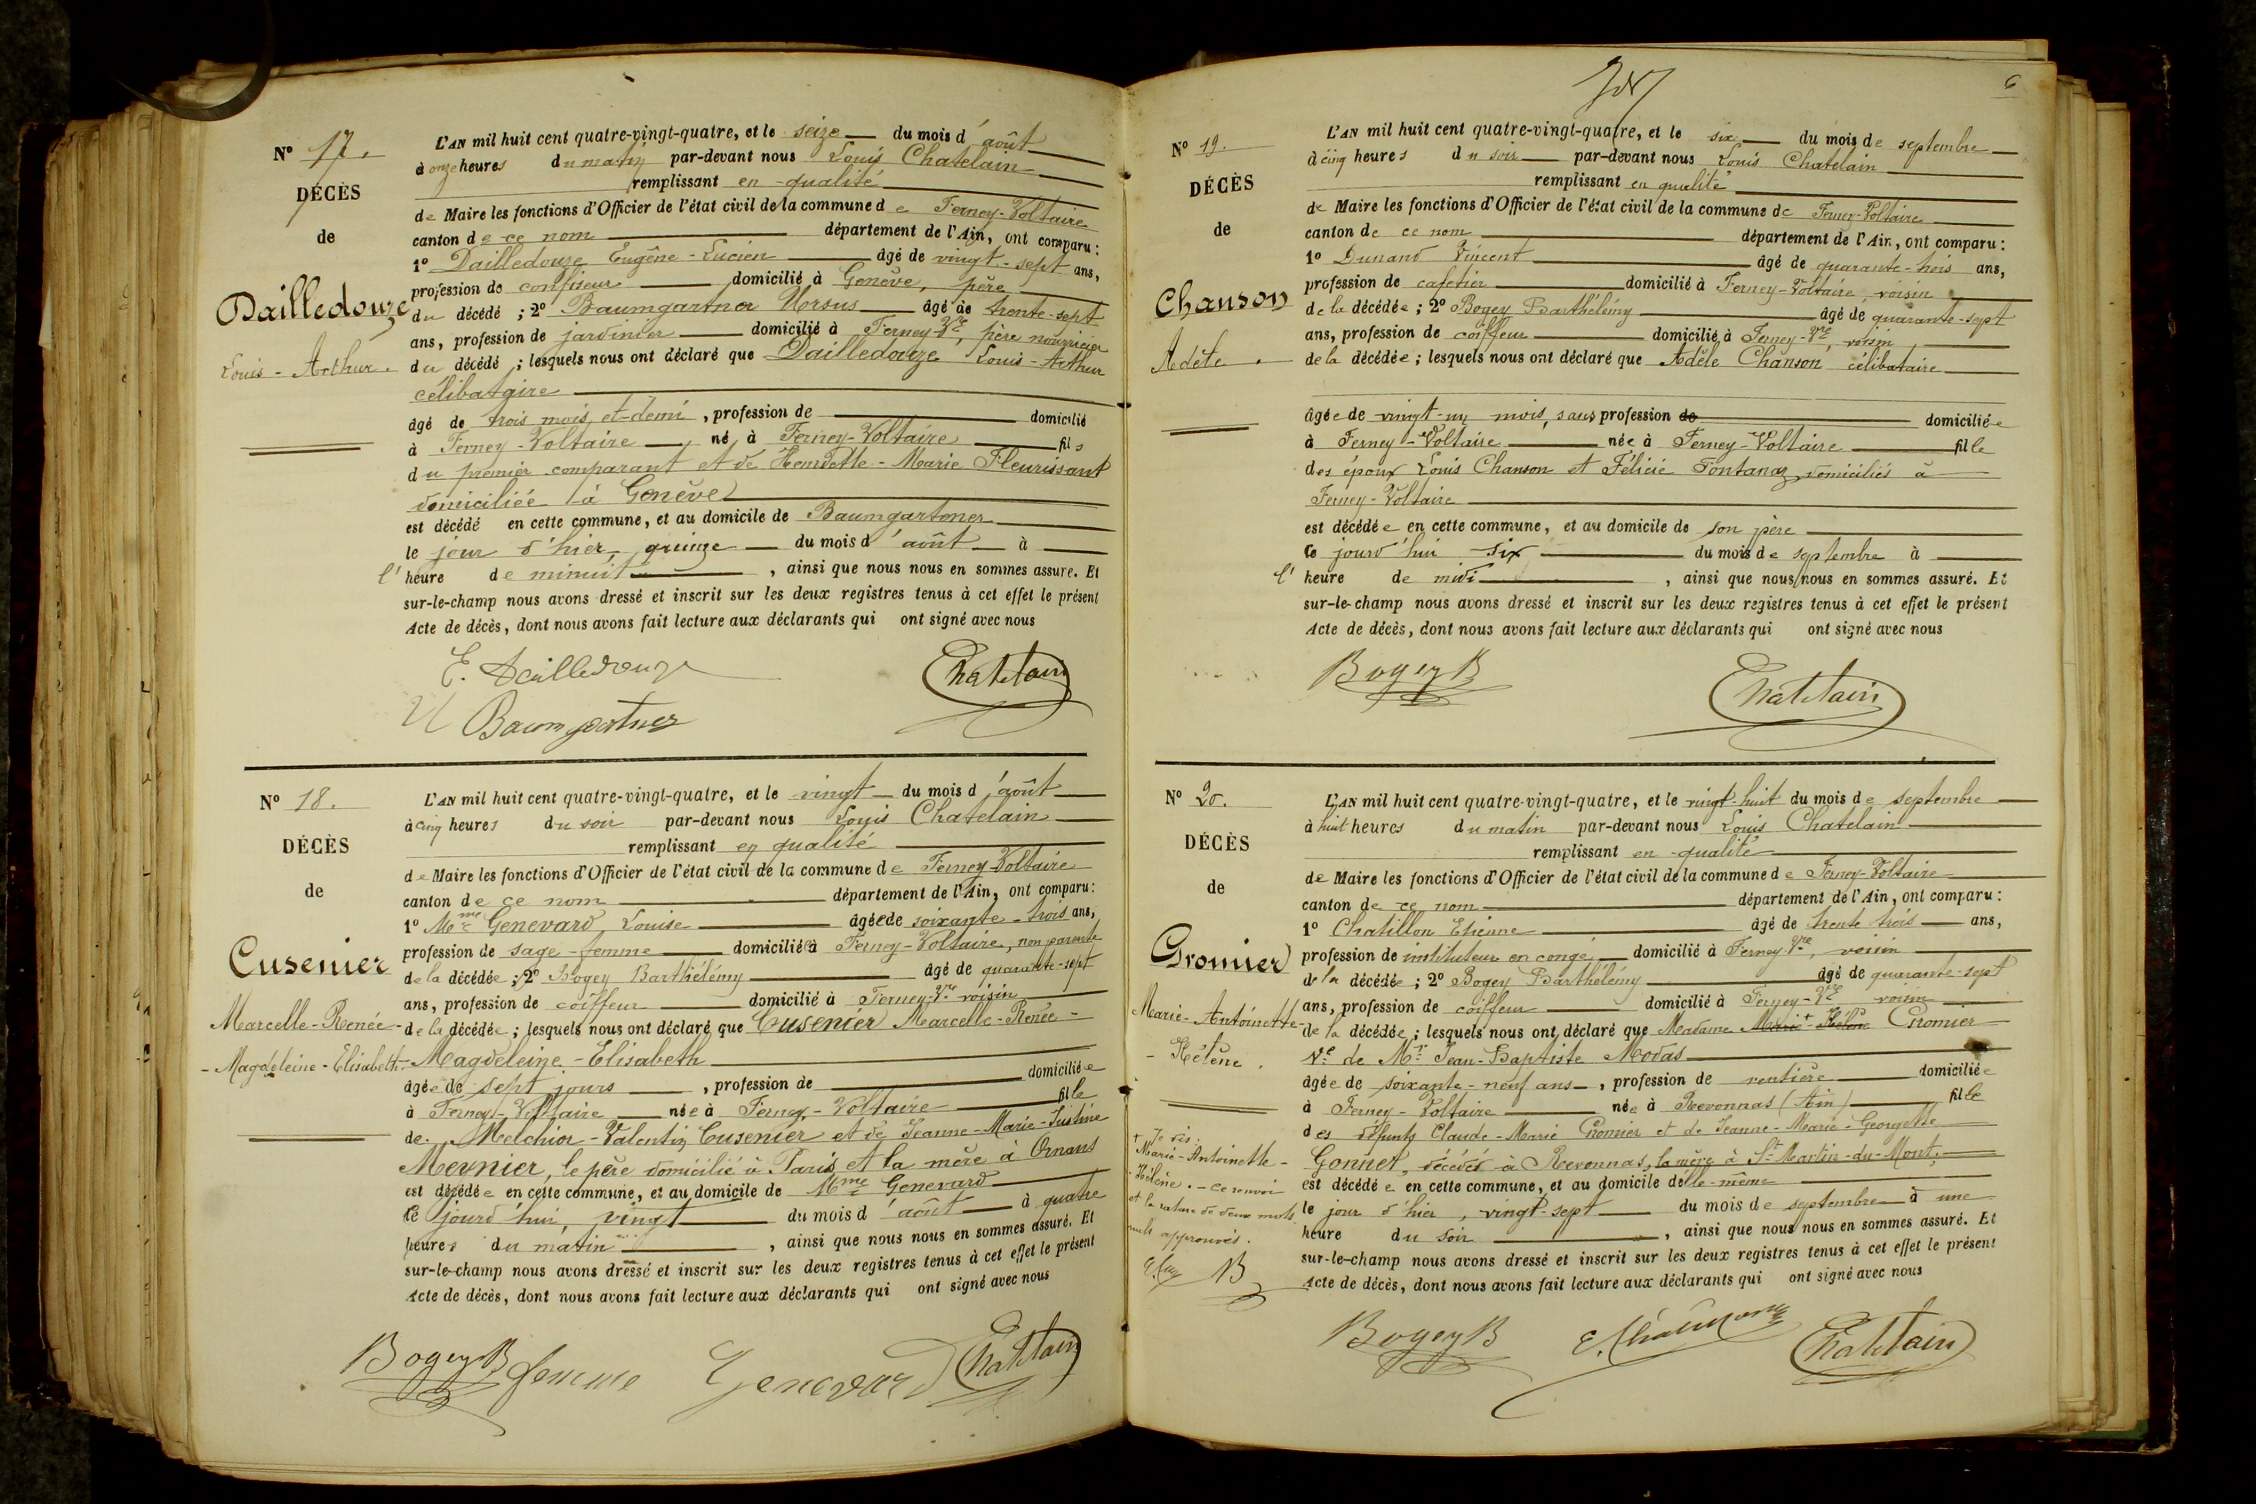 Nº 17.
DÉCÈS
de
Dailledouze
Louis-Arthur.
L'AN mil huit cent quatre-vingt-quatre, et le seize du mois d'août
à onze heures du matin par-devant nous Louis Chatelain
remplissant en qualité
de Maire les fonctions d'Officier de l'état civil de la commune de Ferney-Voltaire
canton de ce nom département de l'Ain, ont comparu :
1º Dailledouze Eugêne-Lucien âgé de vingt-sept ans,
profession de confiseur domicilié à Genève, père
du décédé ; 2º Baumgartner Ursus âgé de trente-sept
ans, profession de jardinier domicilié à Ferney-Vre, père nourricier
du décédé ; lesquels nous ont déclaré que Dailledouze Louis-Arthur
célibataire
âgé de trois mois et demi, profession de domicilié
à Ferney-Voltaire né à Ferney-Voltaire fils
du premier comparant et de Henriette-Marie Fleurissant
domiciliée à Genève
est décédé en cette commune, et au domicile de Baumgartener
le jour d'hier, quinze du mois d'août à
l'heure de minuit, ainsi que nous nous en sommes assuré. Et
sur-le-champ nous avons dressé et inscrit sur les deux registres tenus à cet effet le présent
Acte de décès, dont nous avons fait lecture aux déclarants qui ont signé avec nous
E. Dailledouze
Chatelain
U Baumgartner
Nº 18.
DÉCÈS
de
Cusenier
Marcelle-Renée-
-Magdeleine-Elisabeth-
L'AN mil huit cent quatre-vingt-quatre, et le vingt du mois d'août
à cinq heures du soir par-devant nous Louis Chatelain
remplissant en qualité
de Maire les fonctions d'Officier de l'état civil de la commune de Ferney-Voltaire
canton de ce nom département de l'Ain, ont comparu :
1º Mme Genevard Louise âgée de soixante-trois ans,
profession de sage-femme domiciliée à Ferney-Voltaire, non parente
de la décédée ; 2º Bogey Barthélémy âgé de quarante-sept
ans, profession de coiffeur domicilié à Ferney-Vre voisin
de la décédée ; lesquels nous ont déclaré que Cusenier Marcelle-Renée-
Magdeleine-Elisabeth
âgée de sept jours, profession de domiciliée
à Ferney-Voltaire née à Ferney-Voltaire fille
de Melchior-Valentin Cusenier et de Jeanne-Marie-Justine
Meynier, le père domicilié à Paris et la mère à Ornans
est décédée en cette commune, et au domicile de Mme Genevard
le jourd'hui, vingt du mois d'août à quatre
heures du matin, ainsi que nous nous en sommes assuré. Et
sur-le-champ nous avons dressé et inscrit sur les deux registres tenus à cet effet le présent
Acte de décès, dont nous avons fait lecture aux déclarants qui ont signé avec nous
Bogey B femme Genevard Chatelain
6
Nº 19.
DÉCÈS
de
Chanson
Adèle.
L'AN mil huit cent quatre-vingt-quatre, et le six du mois de septembre
à cinq heures du soir par-devant nous Louis Chatelain
remplissant en qualité
de Maire les fonctions d'Officier de l'état civil de la commune de Ferney-Voltaire
canton de ce nom département de l'Ain, ont comparu :
1º Dunand Vincent âgé de quarante-trois ans,
profession de cafetier domicilié à Ferney-Voltaire, voisin
de la décédée ; 2º Bogey Barthélémy âgé de quarante-sept
ans, profession de coiffeur domicilié à Ferney-Vre, voisin
de la décédée ; lesquels nous ont déclaré que Adèle Chanson célibataire
âgée de vingt-un mois, sans profession de domiciliée
à Ferney-Voltaire née à Ferney-Voltaire fille
des époux Louis Chanson et Félicie Fontanaz domiciliés à
Ferney-Voltaire
est décédée en cette commune, et au domicile de son père
le jourd'hui six du mois de septembre à
l'heure de midi, ainsi que nous nous en sommes assuré. Et
sur-le-champ nous avons dressé et inscrit sur les deux registres tenus à cet effet le présent
Acte de décès, dont nous avons fait lecture aux déclarants qui ont signé avec nous
Bogey B
Chatelain
Nº 20.
DÉCÈS
de
Gromier
Marie-Antoinette-
-Hélène.
L'AN mil huit cent quatre-vingt-quatre, et le vingt-huit du mois de septembre
à huit heures du matin par-devant nous Louis Chatelain
remplissant en qualité
de Maire les fonctions d'Officier de l'état civil de la commune de Ferney-Voltaire
canton de ce nom département de l'Ain, ont comparu :
1º Chatillon Etienne âgé de trente trois ans,
profession de instituteur en congé domicilié à Ferney-Vre, voisin
de la décédée ; 2º Bogey Barthélémy âgé de quarante-sept
ans, profession de coiffeur domicilié à Ferney-Vre voisin
de la décédée ; lesquels nous ont déclaré que Madame Marie + Hélène Gromier
Ve de Mr Jean-Baptiste Modas
âgée de soixante-neuf ans, profession de rentière domiciliée
à Ferney-Voltaire née à Revonnas (Ain) fille
des défunts Claude-Marie Gromier et de Jeanne-Marie-Georgette
Gonnet, décédés à Revonnas, la mère à St-Martin-du-Mont.
est décédée en cette commune, et au domicile d'elle-même
le jour d'hier, vingt-sept du mois de septembre à une
heure du soir, ainsi que nous nous en sommes assuré. Et
sur-le-champ nous avons dressé et inscrit sur les deux registres tenus à cet effet le présent
Acte de décès, dont nous avons fait lecture aux déclarants qui ont signé avec nous
Je dis:
+ Marie-Antoinette-
-Hélène. - Ce renvoi
et la rature de deux mots
nuls approuvés.
B
Bogey B
Chatelain